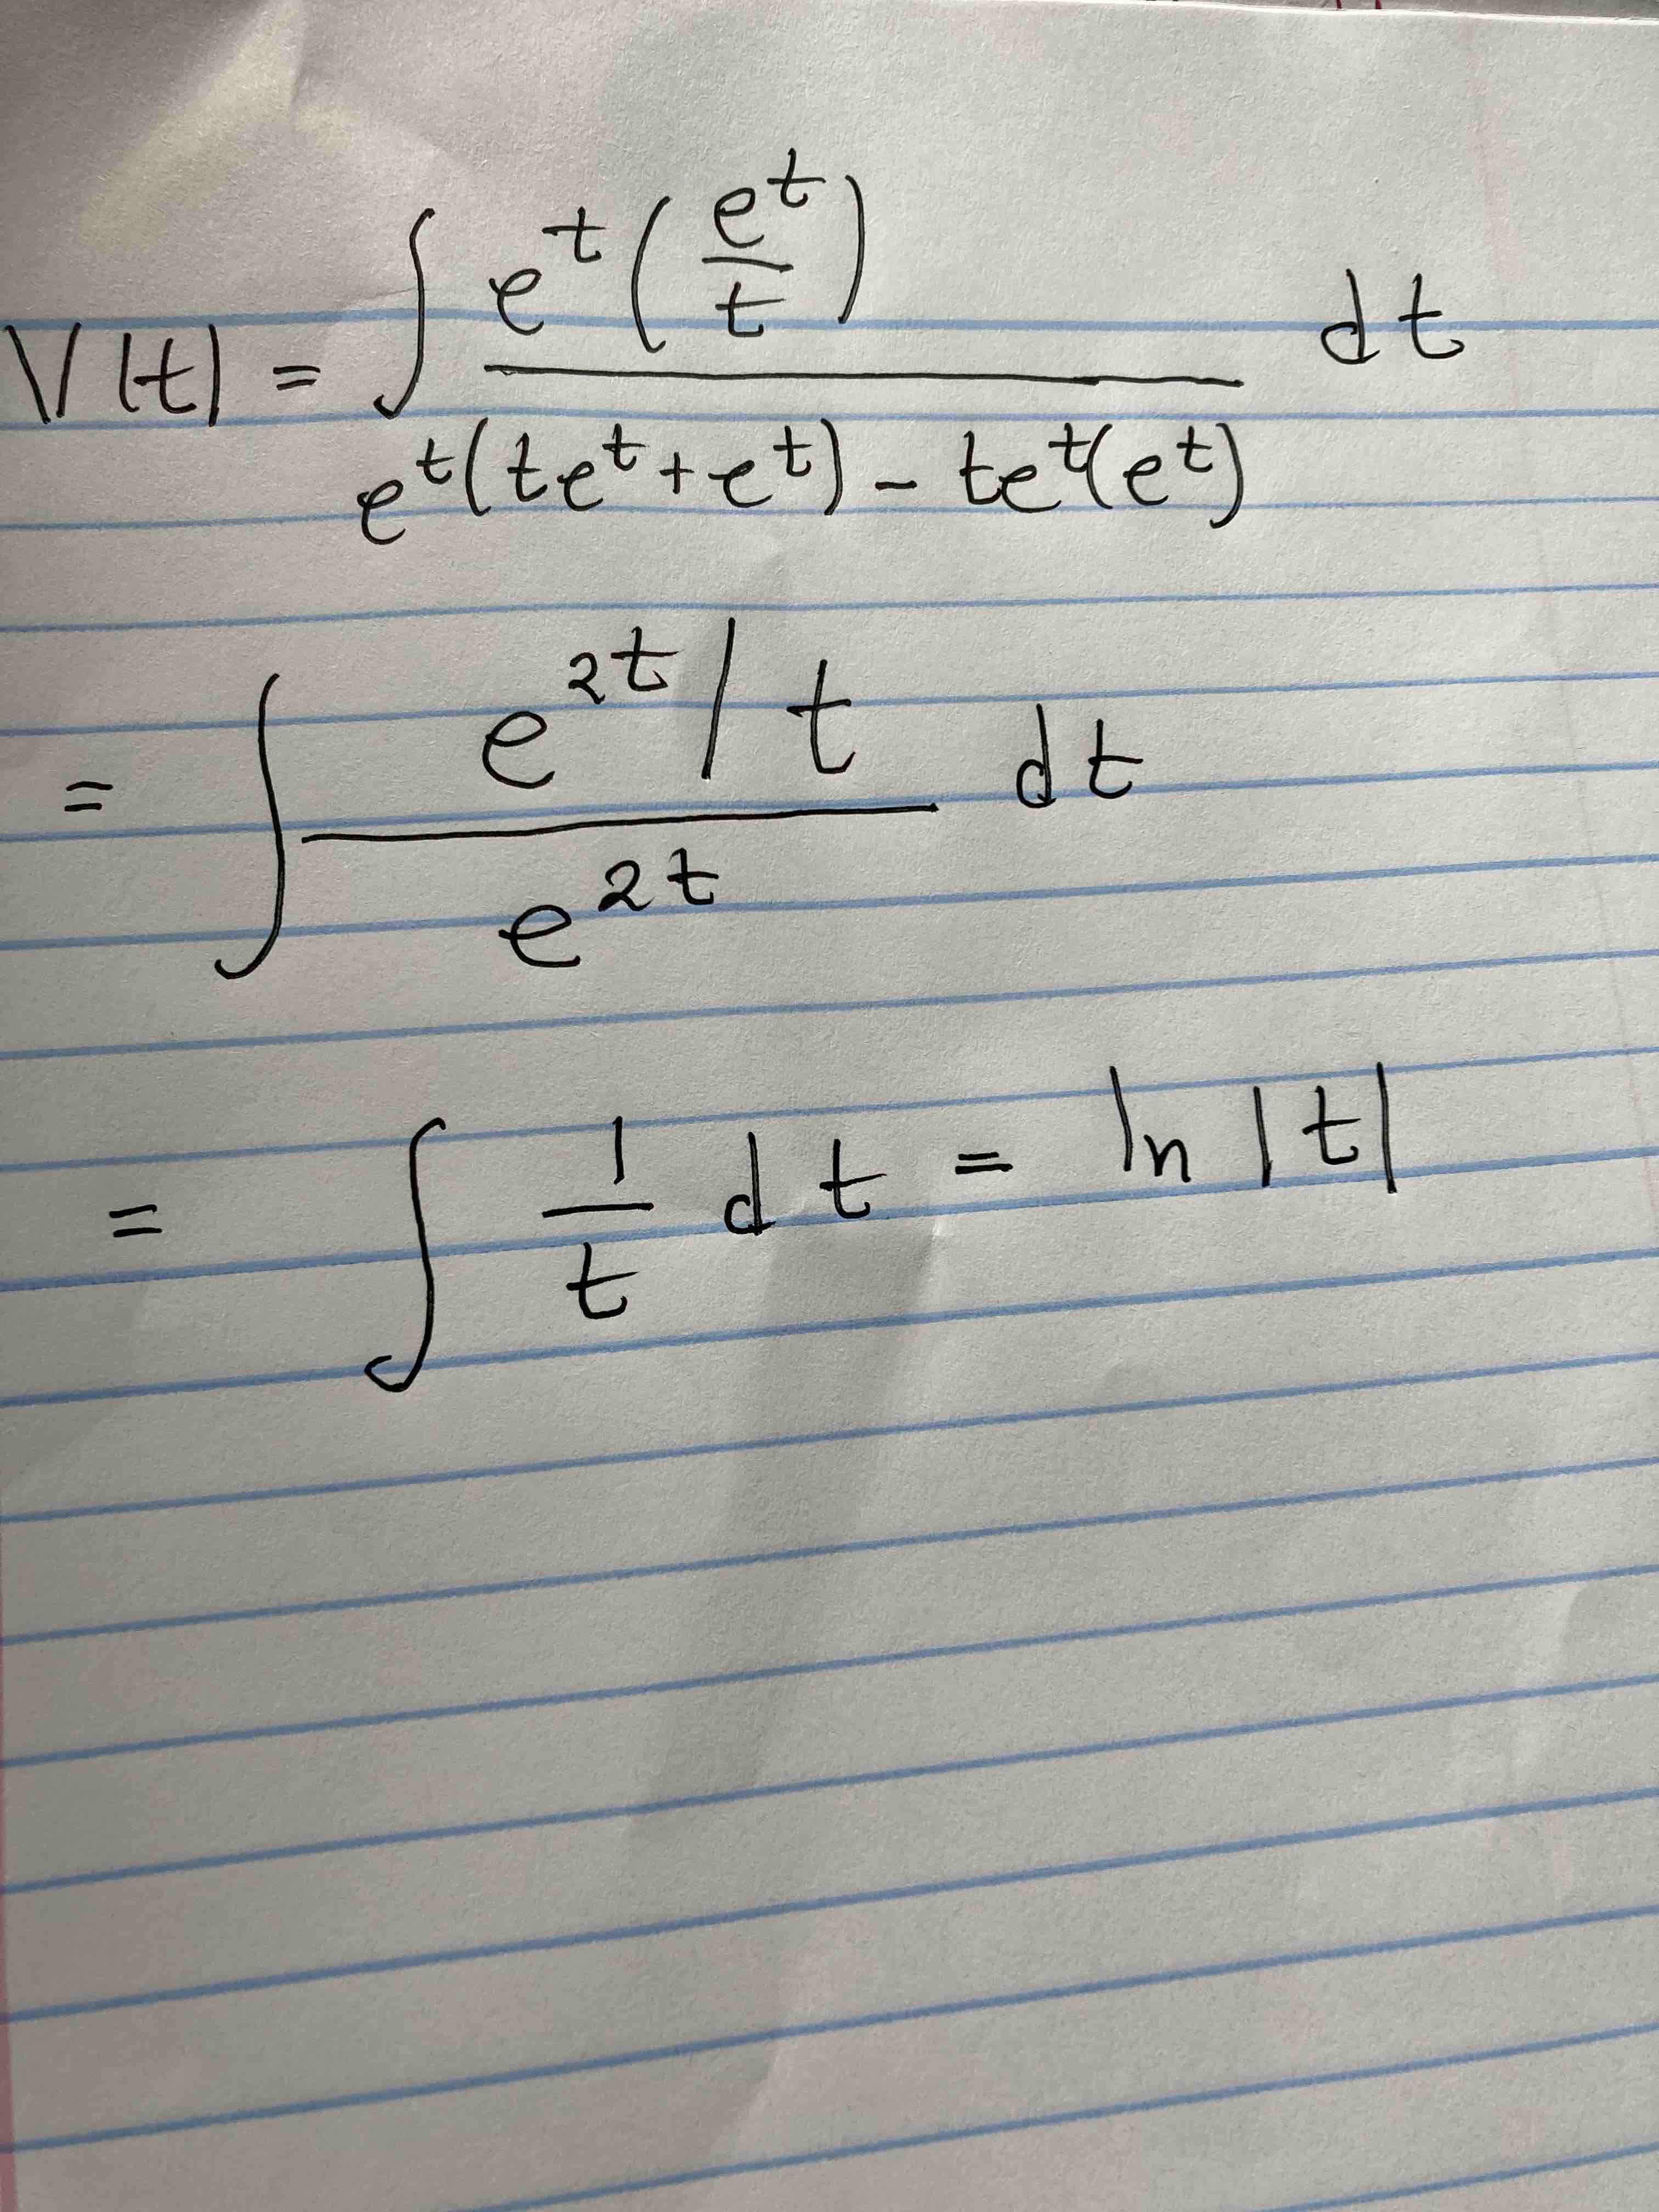 V(t) = ∫ e^t (e^t / t) / (e^t(te^t + e^t) - te^t(e^t)) dt
= ∫ (e^{2t} / t) / e^{2t} dt
= ∫ 1/t dt = ln |t|